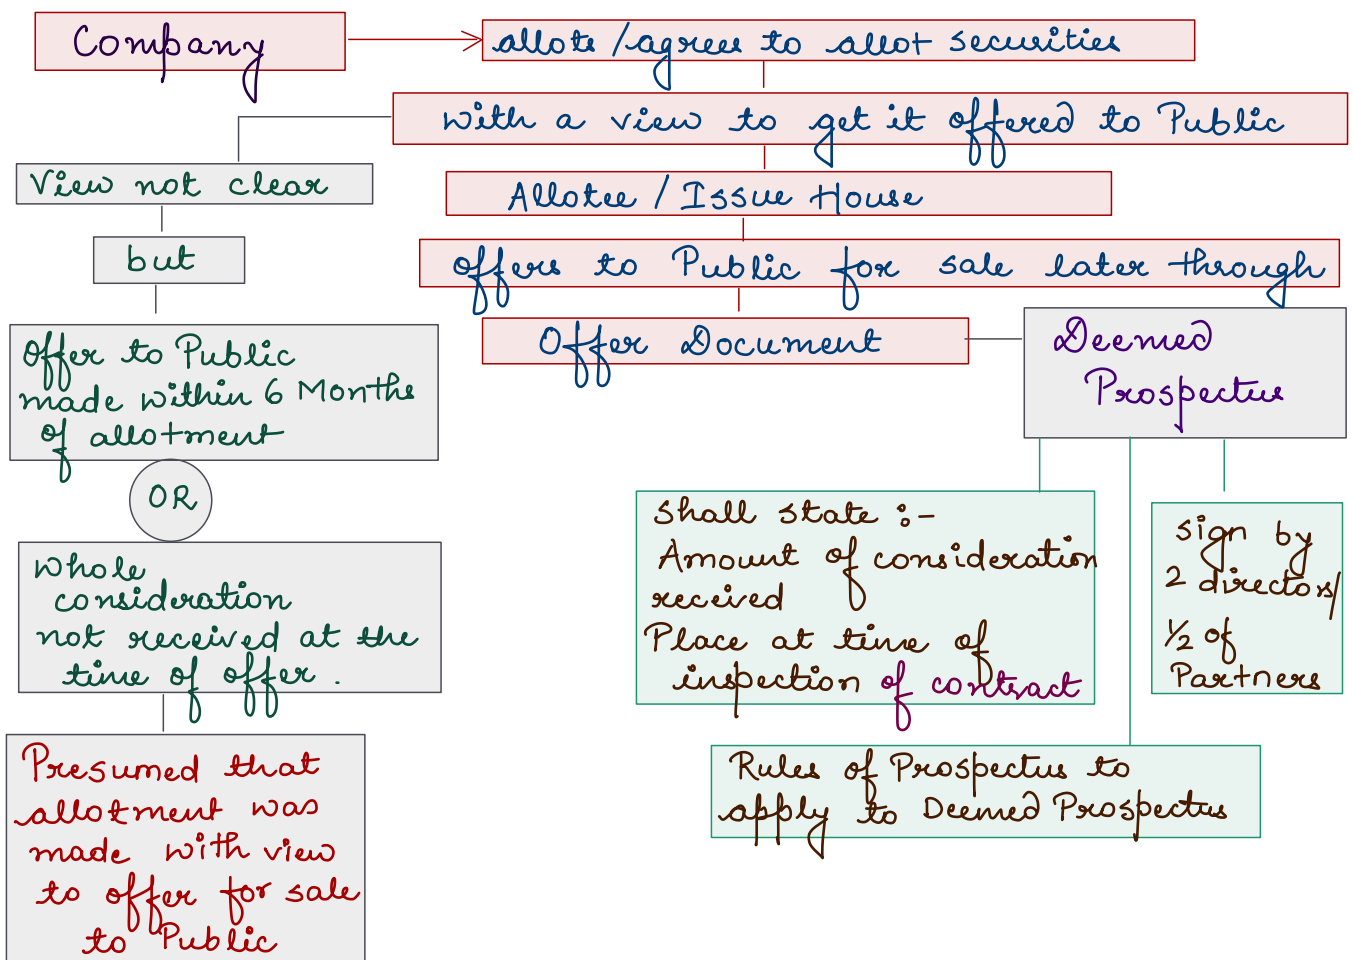 Company
allots/agrees to allot securities
with a view to get it offered to Public
View not clear
Allotee / Issue House
but
offers to Public for sale later through
Offer Document
Deemed
Prospectus
Offer to Public
made within 6 Months
of allotment
OR
whole
consideration
not received at the
time of offer.
Presumed that
allotment was
made with view
to offer for sale
to Public
Shall state :-
Amount of consideration
received
Place at time of
inspection of contract
sign by
2 directors/
1/2 of
Partners
Rules of Prospectus to
apply to Deemed Prospectus